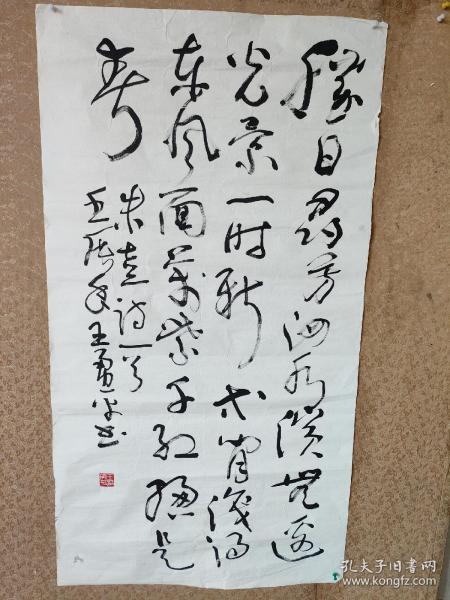 勝日尋芳泗水濱無邊
光景一时新等闲識得
东风面萬紫千红總是
春
朱熹诗一首
年王勇平书
孔夫子旧书网
www.kongfz.com